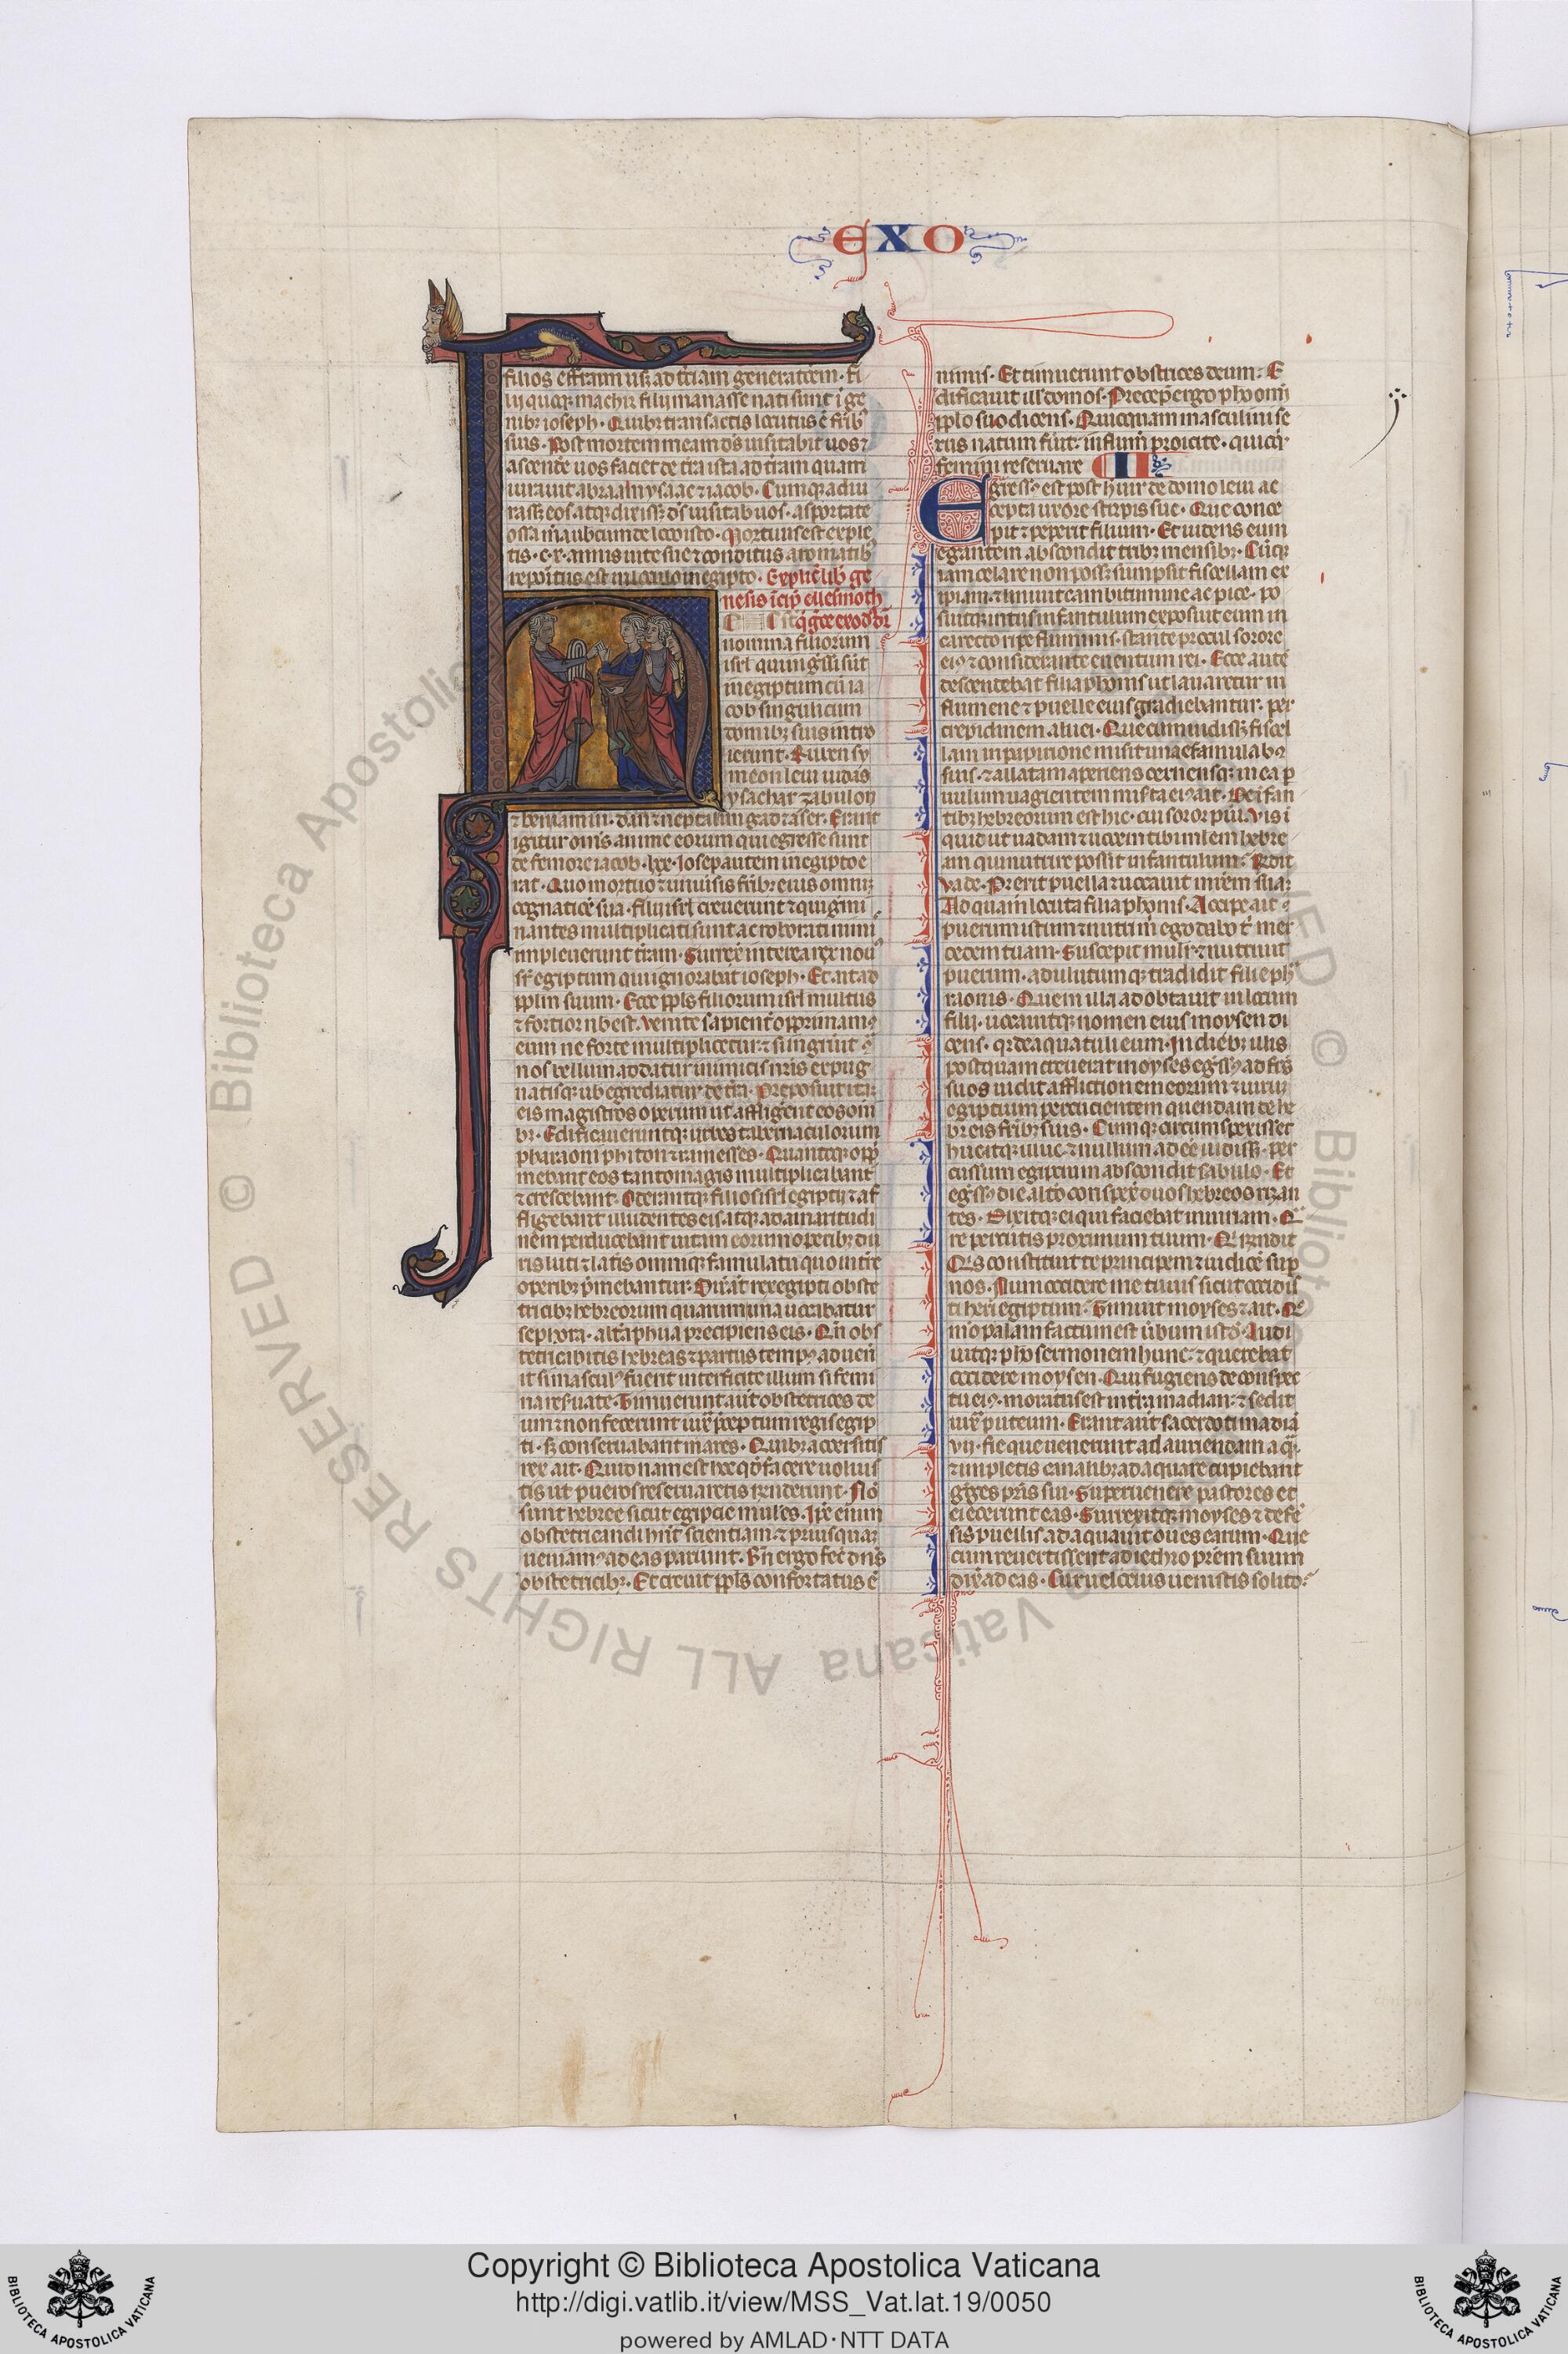 EXO
filios effraim usq; ad t̃ciam generatōem. Fi
lij quoq; machir filij manasse nati sunt ĩ ge
nibꝫ ioseph. Quibꝫ transactis locutus ẽ frĩbꝫ
suis. Post mortem meam dš uisitabit uos ⁊
ascendẽ uos faciet de t̃ra ista ad t̃ram quam
iurauit abraam ysaac ⁊ iacob. Cumq; adiu
rass; eos atq; dixiss; dš uisitab uos. asportate
ossa m̃a uobcum de loco isto. Mortuus est exple
tis .c.x. annis uite sue ⁊ conditus aromatibꝫ
repoĩtus est in loculo in egipto. Explic̃ lib̃ ge
nesis ĩcip̃ ellesmoth
q̃ g̃ce exod' dr̃
nomina filiorum
isrl̃ qui ingr̃ssi sũt
in egiptum cũ ia
cob singuli cum
domibꝫ suis intro
ierunt. Ruben sy
meon leui iudas
ysachar zabulon
⁊ beniamin. dan ⁊ neptalim gad ⁊ aser. Erant
igitur om̃s anime eorum qui egresse sunt
de femore iacob .lxx. Iosep autem in egipto e
rat. Quo mortuo ⁊ uniuĩsis frĩbꝫ eius omniq;
cognatiõe sua. filij isrl̃ creuerunt ⁊ qui g̃mi
nantes multiplicati sunt ac roborati nimĩ
impleuerunt t̃ram. Surrexˉ interea rex nouꝰ
sr̃ egiptum qui ignorabat ioseph. Et ait ad
pp̃lm suum. Ecce pp̃ls filiorum isrl̃ multus
⁊ fortior nb̃ est. Venite sapient̃ opp̃rimamꝰ
eum ne forte multiplicetur: ⁊ si ingrũit ꝯ̃
nos bellum addatur inimicis nr̃is expug
natisq; ub egrediatur de t̃ra. Preposuit itaq;
eis magistros operum ut affligẽnt eos oñi
bꝫ. Edificaueruntq; urbes tabernaculorum
pharaoni phiton ⁊ ramesses. Quantoq; opp̃
mebant eos tanto magis multiplicabantˉ
⁊ crescebant. Oderantq; filios isrl̃ egiptij ⁊ af
fligebant illudentes eis. atq; ad amaritudi
nẽm perducebant uitam eorum operibꝫ du
ris luti ⁊ lat̃is omniq; famulatu quo in t̃re
operibꝫ p̃mebantur. Dix̃ aũt rex egipti obste
tricibꝫ hebreorum quarum una uocabatur
sephora. alt̃a phua precipiens eis. Qñ obs
tetricabitis hebreas ⁊ partus tempꝰ aduen̄
it si masculꝰ fuerit interficite illum si femi
na reš̃uate. Timuerunt aũt obstetrices de
um ⁊ non fecerunt iux̃ p̃ceptum regis egip
ti. s; conseruabant mares. Quibꝫ accersitis
rex ait. Quid nam est hoc qđ facere uoluis
tis ut pueros reseruaretis r̃nderunt. Nõ
sunt hebree sicut egipcie mulˉes. Ip̃e enim
obstetricandi hñt scientiam. ⁊ priusquaꝫ
ueniamꝰ ad eas pariunt. B̃n ergo fec̃ dñs
obstetricibꝫ. Et creuit pp̃ls confortatus ẽ
nimis. Et timuerunt obstrices deum: E
dificauit ill' domos. Precep̃ ergo pho om̃i
pp̃lo suo dicens. Quicquam masculini se
xus natum fũit: in flum̃ proicite. quicq̃
feminĩ reseruare II
Egressꝰ est post h̃ uir de domo leui ac
cepta uxore stirpis sue. Que conce
pit ⁊ peperit filium. Et uidens eum
egantem abscondit tribꝫ mensibꝫ. Cũq;
iam celare non poss; sumpsit fiscellam ex
ipiam. ⁊ liniuit eam bitumine ac pice. po
suitq; intus infantulum ⁊ exposuit eum in
carecto ripe fluminis. stante procul sorore
eiꝰ ⁊ considerante euentum rei. Ecce autẽ
descendebat filia phõnis ut lauaretur in
flumene ⁊ puelle eius gradiebantur. per
crepidinem aluei. Que cum uidiss; fiscel
lam in papirione misit unã ex famulabꝫ
suis. ⁊ allatam aperiens cernensq; in ea p
uulum uagientem mis̃ta eiꝰ ait. De ĩfan
tibꝫ hebreorum est hic. cui soror p̃ui. Vis ĩ
quid ut uadam ⁊ uocem tibi ml̃em hebre
am qui nutrire possit infantulum: R̃ndit
Vade. Prexit puella ⁊ uocauit mr̃em suaꝫ
Ad quam locuta filia phõnis. Accipe ait
puerum istum ⁊ nutri m̃ ego dabo t̃ mer
cedem tuam. Suscepit mulĩ ⁊ nutriuit
puerum. adultumq; tradidit filie pha
raonis. Quem illa adobtauit in locum
filij. uocauitq; nomen eius moysen di
cens. qr̃ de aqua tuli eum. In diebꝫ illis
postquam creuerat moyses egr̃ssꝰ ad fr̃s
suos uidit afflictionem eorum ⁊ uirum
egiptium percucientem quendam de he
breis frĩbꝫ suis. Cumq; circumspexisset
huc atq; illuc. ⁊ nullum adeẽ uidiss;. per
cussum egiptium abscondit sabulo. Et
egr̃ssꝰ die alt̃o conspexˉ duos hebreos rixan
tes. Dixitq; ei qui faciebat iniuriam. Q̃
re percutis proximum tuum. Q̃ r̃ndit
Q̃s constituit te principem ⁊ iudicẽ sup̃
nos. Num occidere me tu uis sicut occidis
ti heri egiptum: Timuit moyses ⁊ ait. Q̃
m̃o palam factum est ũbum istđ. Audi
uitq; pho sermonem hunc. ⁊ querebat
occidere moysen. Qui fugiens de conspec
tu eiꝰ. moratus est in t̃ra madian. ⁊ sedit
iux̃ puteum. Erant aũt sacerdoti madiã
vij. fie que uenerunt ad auriendam aq̃.
⁊ impletis canalibꝫ adaquare cupiebant
g̃ges pr̃is sui. Superuenere pastores et
eiecerunt eas. Surrexitq; moyses ⁊ defẽ
sis puellis adaquauit oues earum. Que
cum reuertissent ad iechro pr̃em suum
dixˉ ad eas. Cur uelocius uenistis solito.
Copyright © Biblioteca Apostolica Vaticana
http://digi.vatlib.it/view/MSS_Vat.lat.19/0050
powered by AMLAD·NTT DATA
BIBLIOTECA APOSTOLICA VATICANA
BIBLIOTECA APOSTOLICA VATICANA